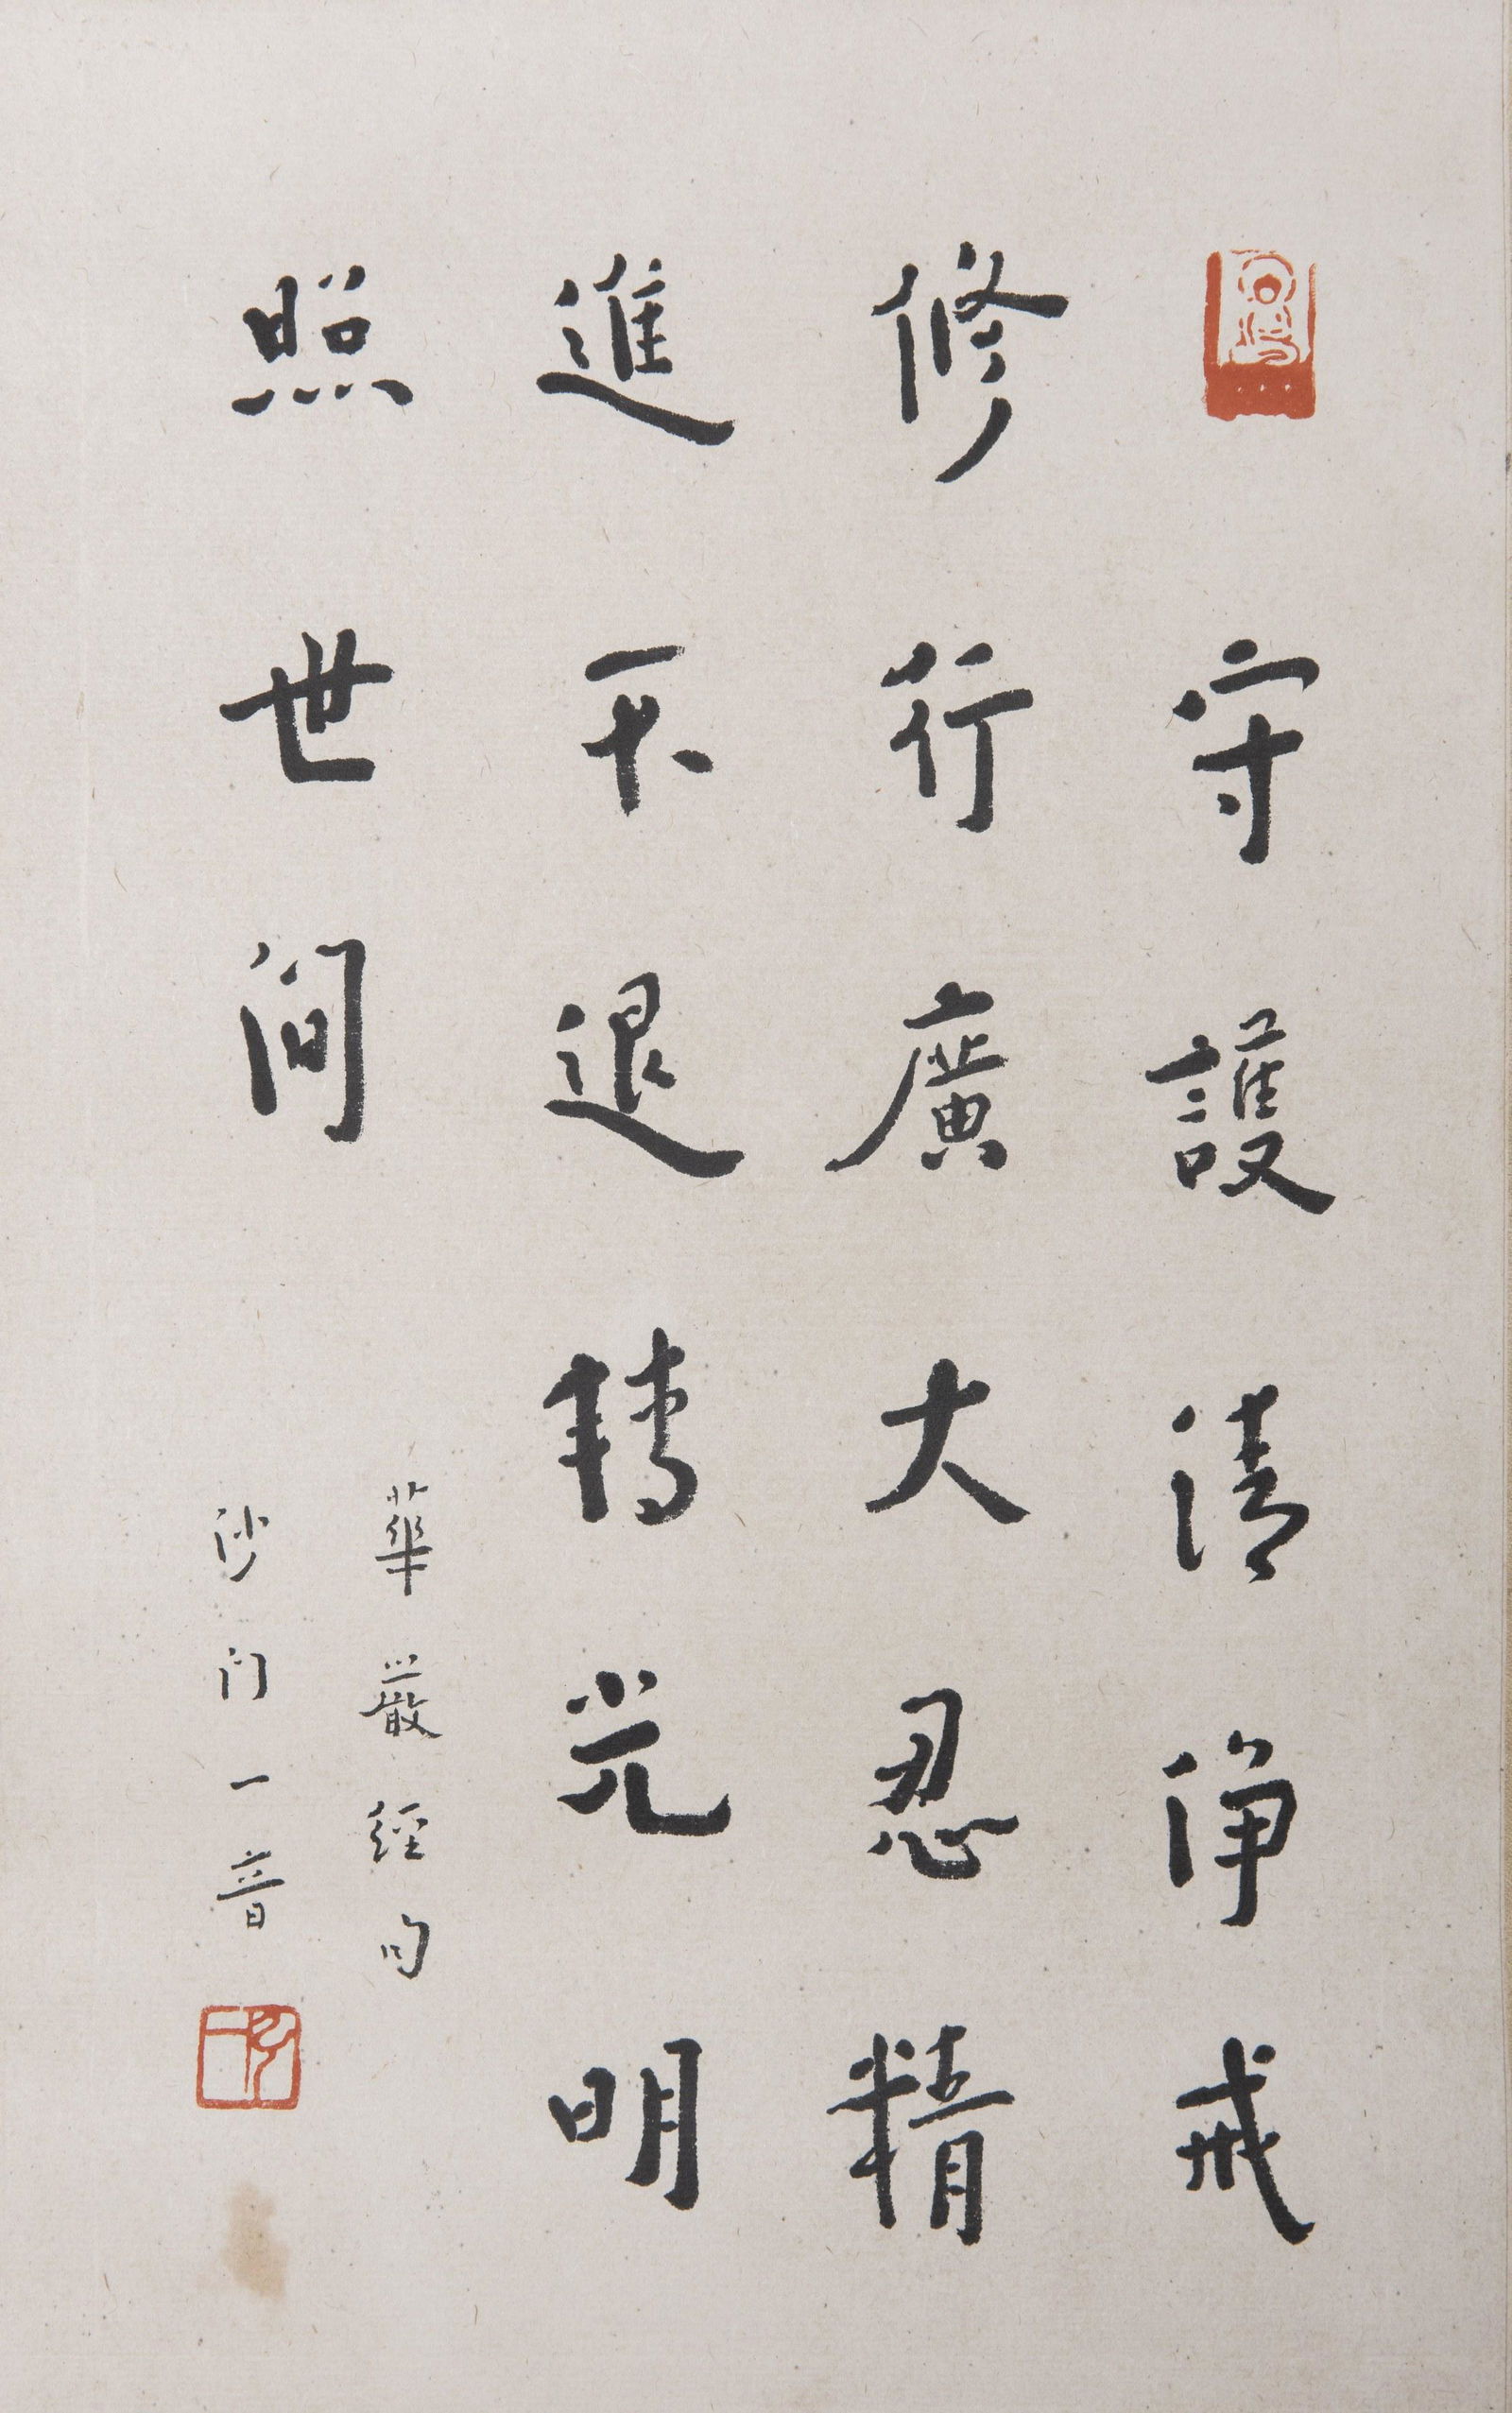 守護清淨戒
修行廣大忍精
進不退轉光明
照世间
華嚴經句
沙门一音